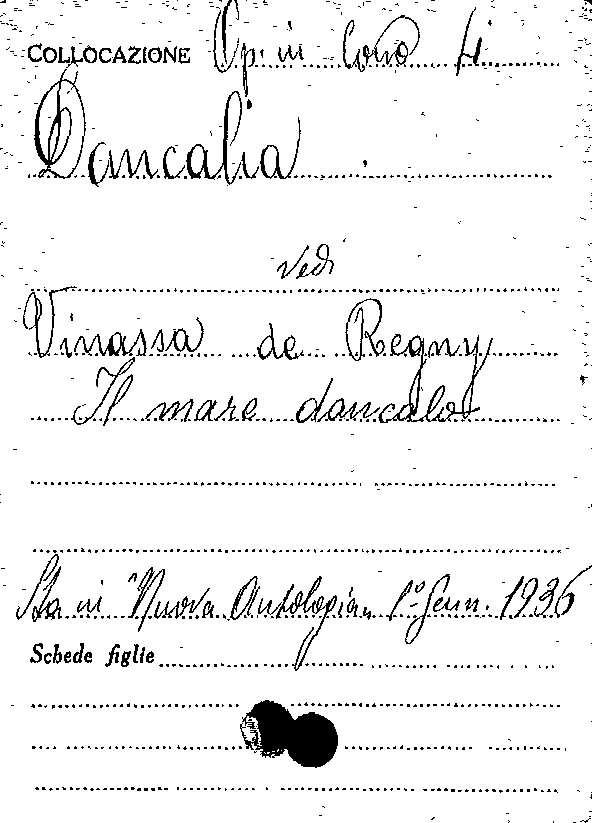 COLLOCAZIONE Op. in Cons 4
Dancalia
vedi
Vinassa de Regny
Il mare dancalo
Sta in "Nuova Antologia" 1° Genn. 1936
Schede figlie